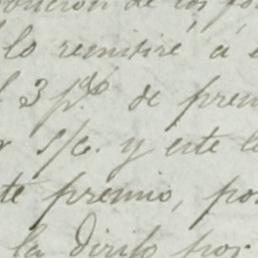 de los
lo remitiré á
3 p% de prem
S/C. y este
te premio, por
la dirijo por